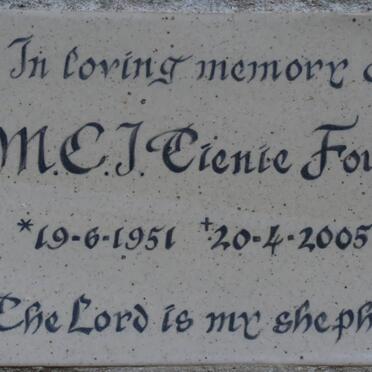 In loving memory o
M.C.J. Cienie Fou
*19-6-1951 †20-4-2005
The Lord is my sheph